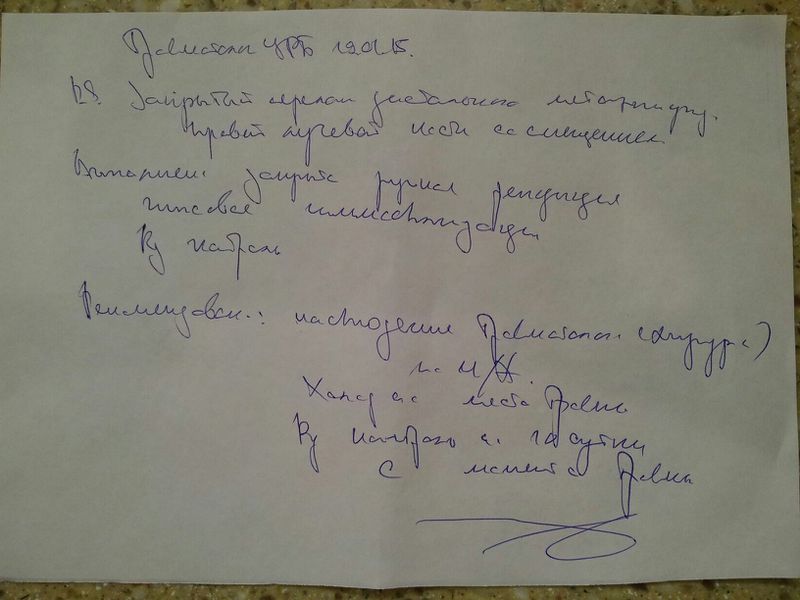 Травматолог ЦРБ 19.01.15.
DS. Закрытый перелом дистального метаэпифиз.
правой лучевой кости со смещением
Выполнен: закрытая ручная репозиция
гипсовая иммобилизация
Rg контроль
Рекомендован.: наблюдение травматолога (хирурга)
на м/ж.
Холод на место травмы
Rg контроль на 10 сутки
с момента травмы